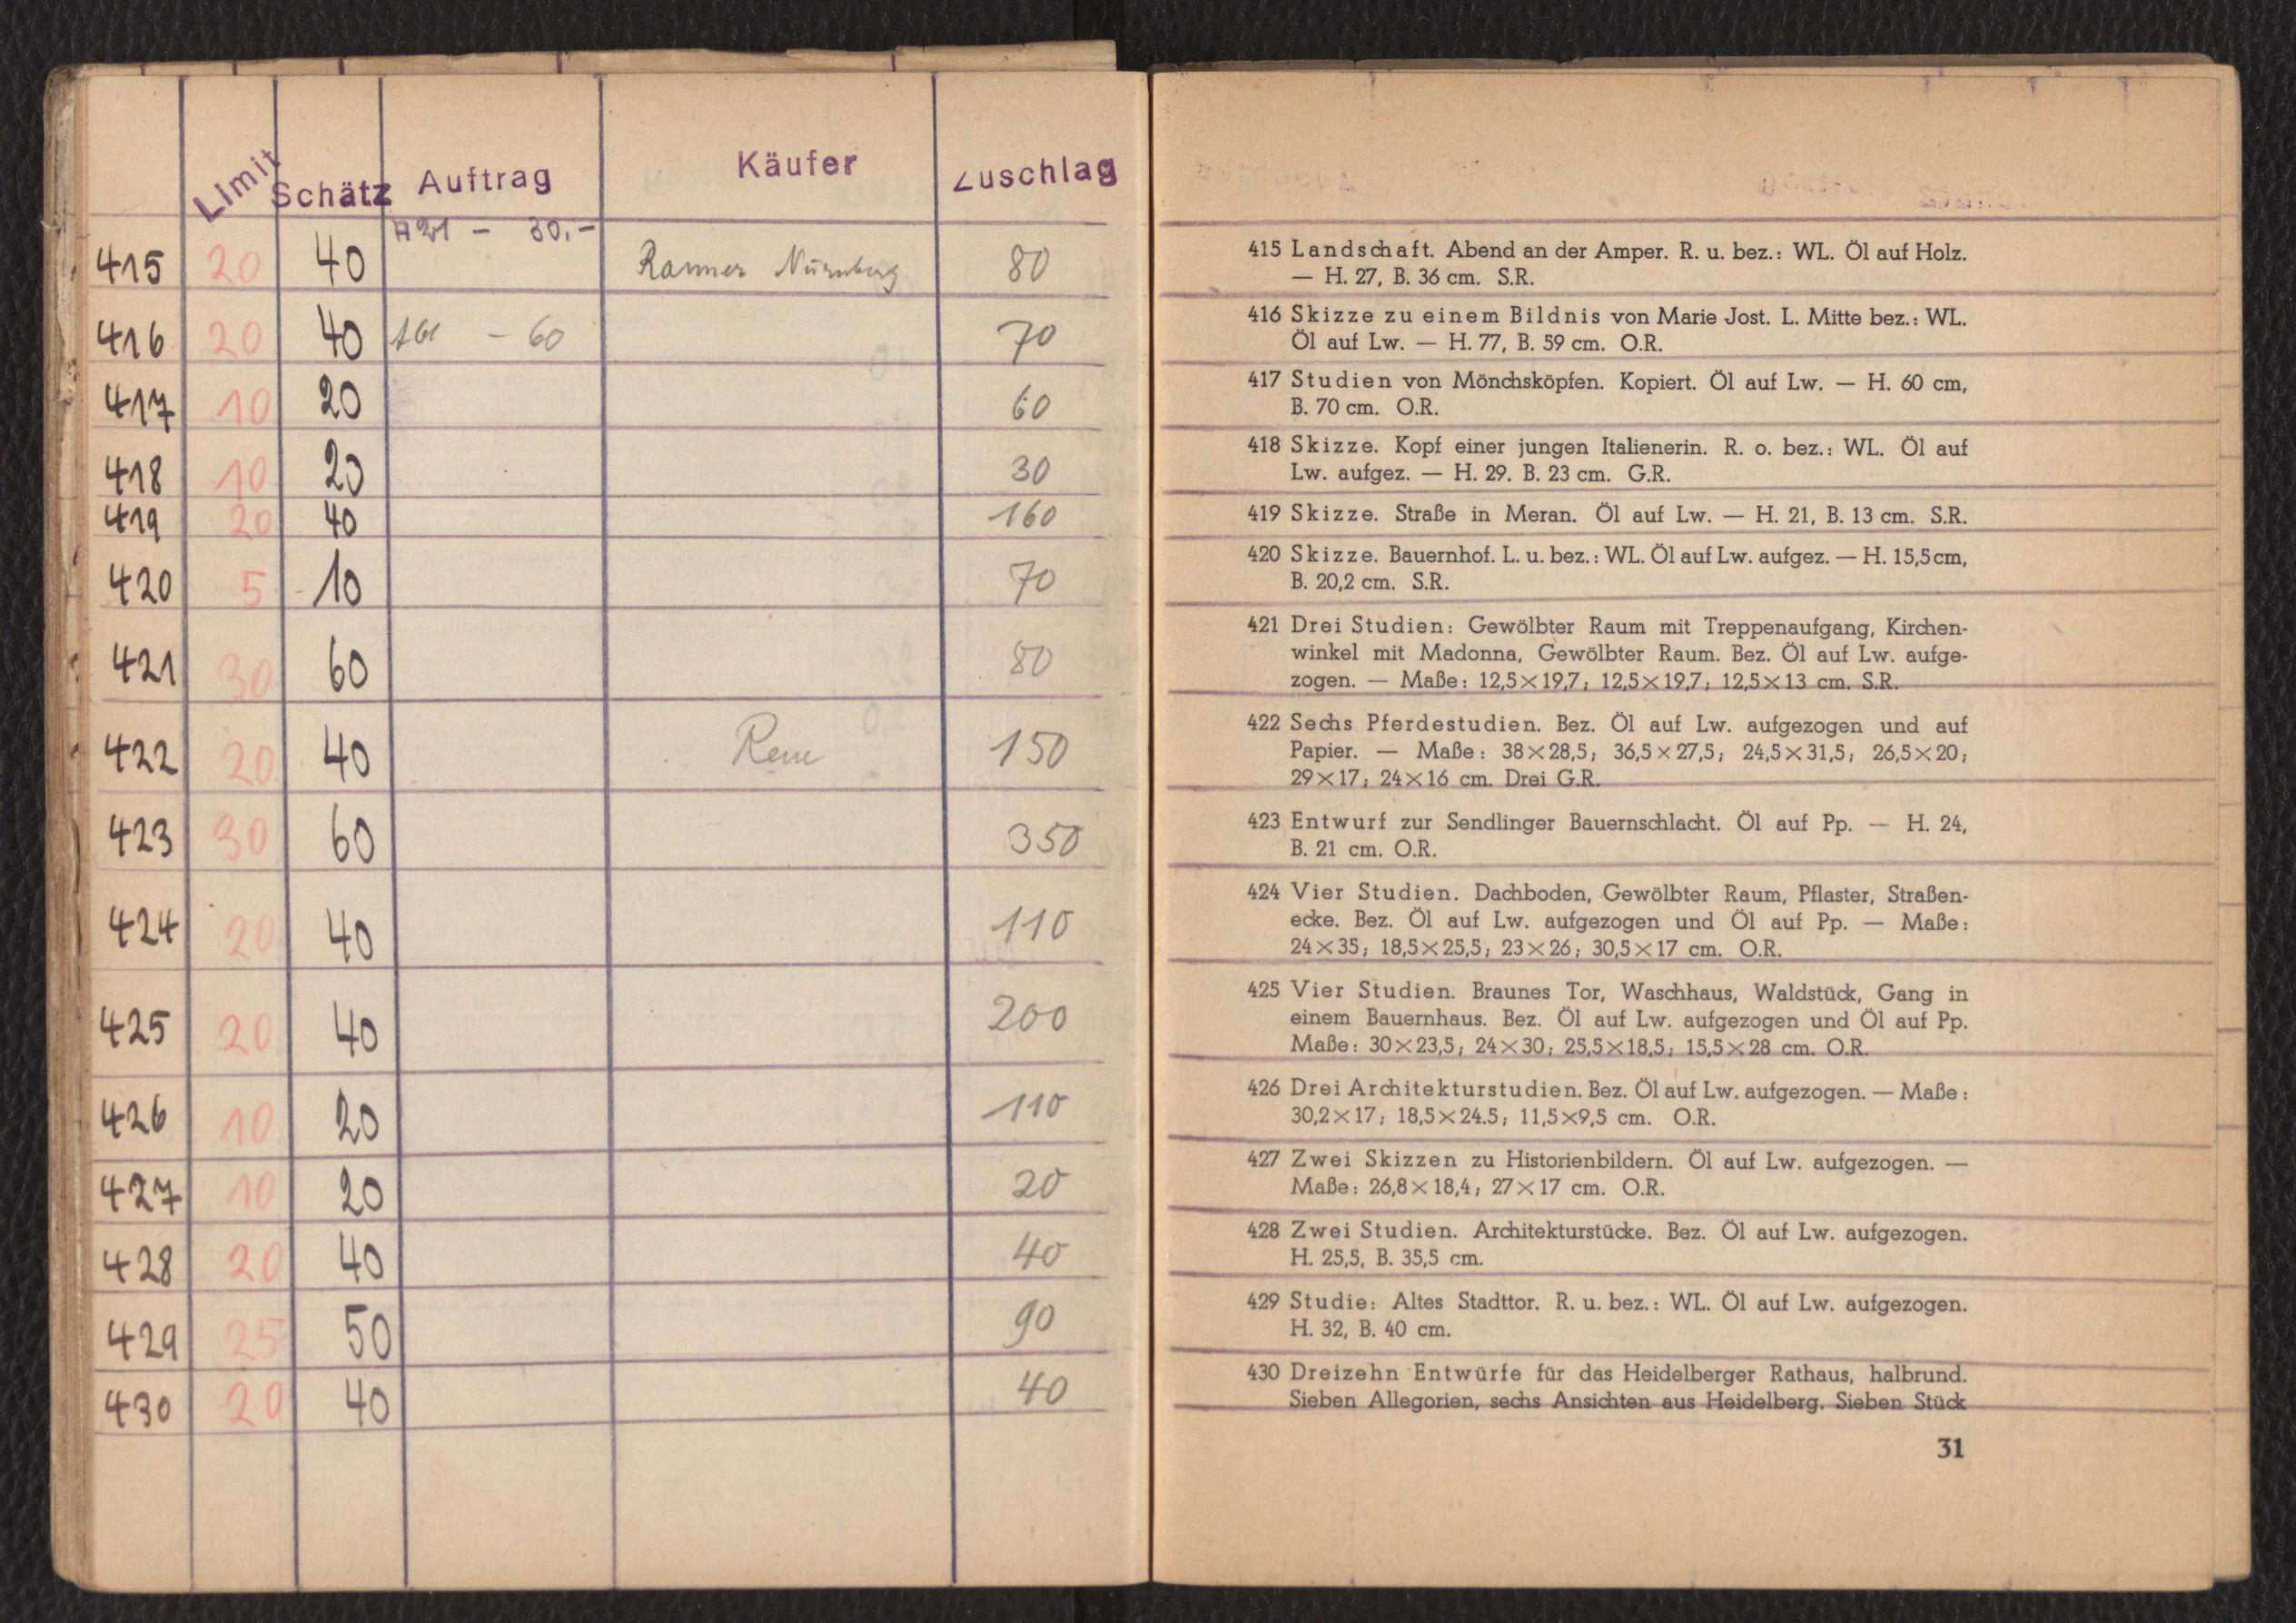 Limit Schätz Auftrag Käufer Zuschlag
A 21 – 30.–
415 20 40 Ranner Nürnberg 80
416 20 40 – 60 70
417 10 20 60
418 10 20 30
419 20 40 160
420 5 10 70
421 30 60 80
422 20 40 150
423 30 60 350
424 20 40 110
425 20 40 200
426 10 20 110
427 10 20 20
428 20 40 40
429 25 50 90
430 20 40 40
415 Landschaft. Abend an der Amper. R. u. bez.: WL. Öl auf Holz.
— H. 27, B. 36 cm. S.R.
416 Skizze zu einem Bildnis von Marie Jost. L. Mitte bez.: WL.
Öl auf Lw. — H. 77, B. 59 cm. O.R.
417 Studien von Mönchsköpfen. Kopiert. Öl auf Lw. — H. 60 cm,
B. 70 cm. O.R.
418 Skizze. Kopf einer jungen Italienerin. R. o. bez.: WL. Öl auf
Lw. aufgez. — H. 29. B. 23 cm. G.R.
419 Skizze. Straße in Meran. Öl auf Lw. — H. 21, B. 13 cm. S.R.
420 Skizze. Bauernhof. L. u. bez.: WL. Öl auf Lw. aufgez. — H. 15,5 cm,
B. 20,2 cm. S.R.
421 Drei Studien: Gewölbter Raum mit Treppenaufgang, Kirchen-
winkel mit Madonna, Gewölbter Raum. Bez. Öl auf Lw. aufge-
zogen. — Maße: 12,5×19,7; 12,5×19,7; 12,5×13 cm. S.R.
422 Sechs Pferdestudien. Bez. Öl auf Lw. aufgezogen und auf
Papier. — Maße: 38×28,5; 36,5×27,5; 24,5×31,5; 26,5×20;
29×17; 24×16 cm. Drei G.R.
423 Entwurf zur Sendlinger Bauernschlacht. Öl auf Pp. — H. 24,
B. 21 cm. O.R.
424 Vier Studien. Dachboden, Gewölbter Raum, Pflaster, Straßen-
ecke. Bez. Öl auf Lw. aufgezogen und Öl auf Pp. — Maße:
24×35; 18,5×25,5; 23×26; 30,5×17 cm. O.R.
425 Vier Studien. Braunes Tor, Waschhaus, Waldstück, Gang in
einem Bauernhaus. Bez. Öl auf Lw. aufgezogen und Öl auf Pp.
Maße: 30×23,5; 24×30; 25,5×18,5; 15,5×28 cm. O.R.
426 Drei Architekturstudien. Bez. Öl auf Lw. aufgezogen. — Maße:
30,2×17; 18,5×24.5; 11,5×9,5 cm. O.R.
427 Zwei Skizzen zu Historienbildern. Öl auf Lw. aufgezogen. —
Maße: 26,8×18,4; 27×17 cm. O.R.
428 Zwei Studien. Architekturstücke. Bez. Öl auf Lw. aufgezogen.
H. 25,5, B. 35,5 cm.
429 Studie: Altes Stadttor. R. u. bez.: WL. Öl auf Lw. aufgezogen.
H. 32, B. 40 cm.
430 Dreizehn Entwürfe für das Heidelberger Rathaus, halbrund.
Sieben Allegorien, sechs Ansichten aus Heidelberg. Sieben Stück
31